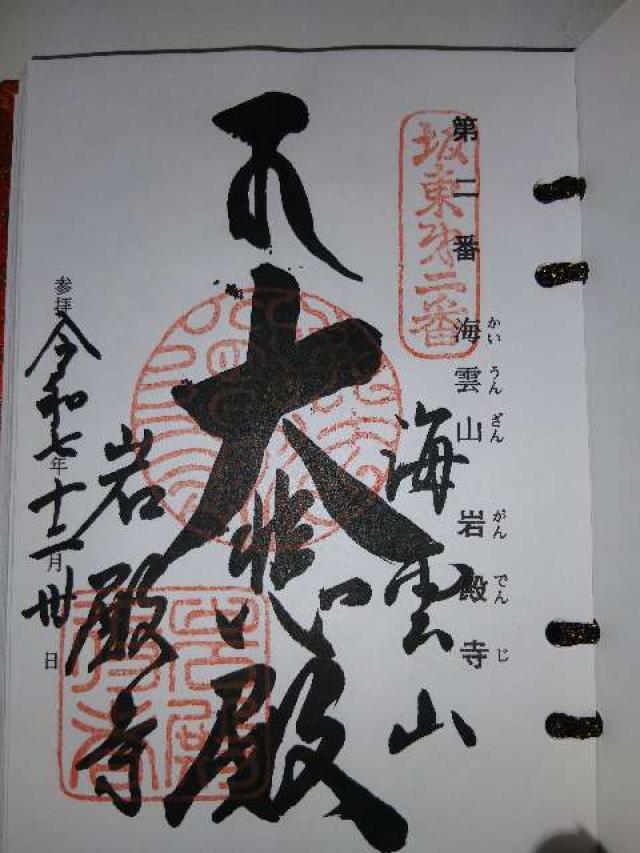 第二番 海雲山 岩殿寺
かいうんざん がんでんじ
坂東㐧二番
海雲山
大悲殿
岩殿寺
参拝 令和七年十二月卅日